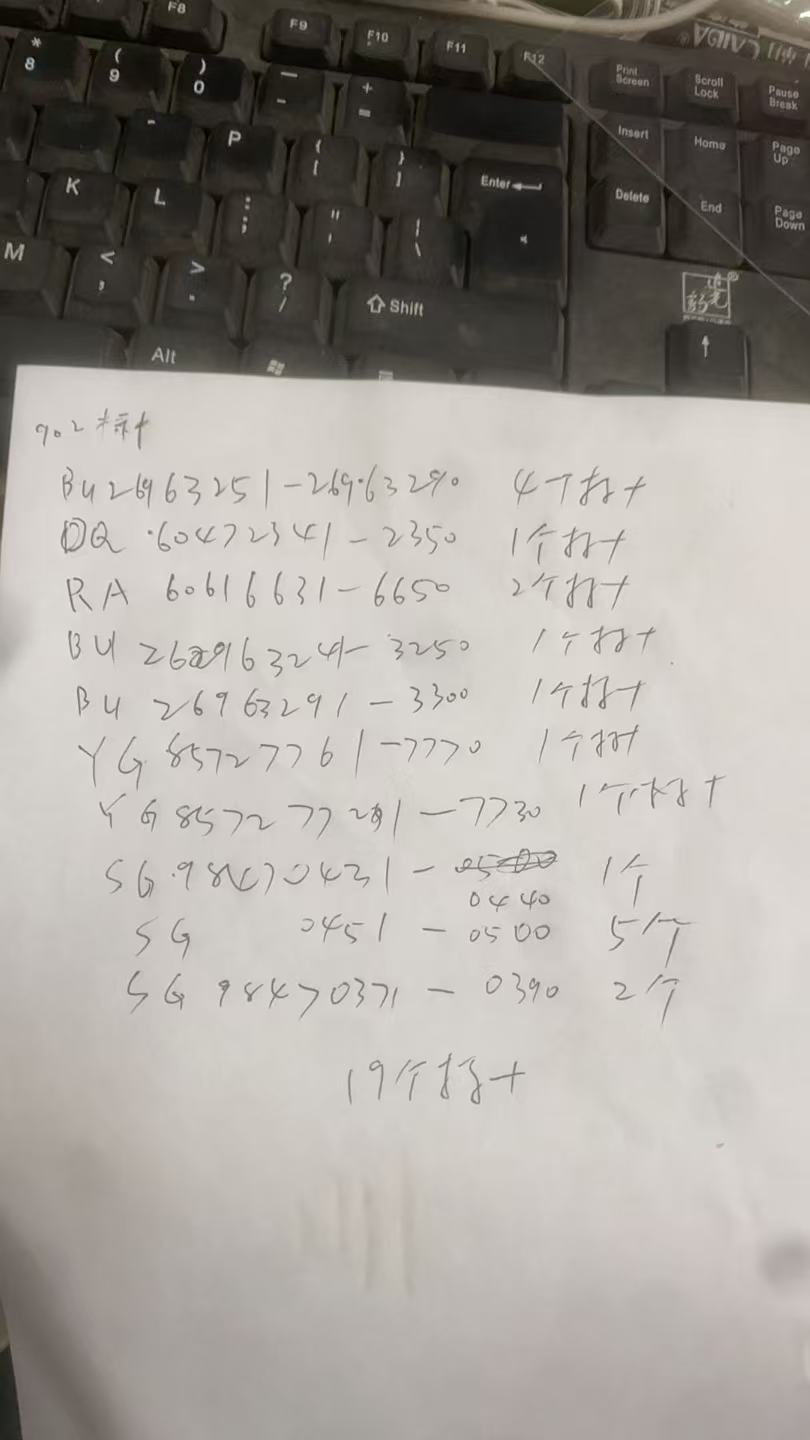 F8
F9 F10 F11 F12
* 8
( 9
) 0
_ -
+ =
Print Screen
Scroll Lock
Pause Break
P
{ [
} ]
Enter
Insert
Home
Page Up
K
L
: ;
" '
| \
Delete
End
Page Down
M
< ,
> .
? /
Shift
Alt
902
BU 26963251-26963290 4个打卡
DQ 60472341-2350 1个打卡
RA 60616631-6650 2个打卡
BU 26963241-3250 1个打卡
BU 26963291-3300 1个打卡
YG 85727761-7770 1个打卡
YG 85727721-7730 1个打卡
SG 98470431- 1个
0440
SG 0451 - 0500 5个
SG 98470371 - 0390 2个
19个打卡